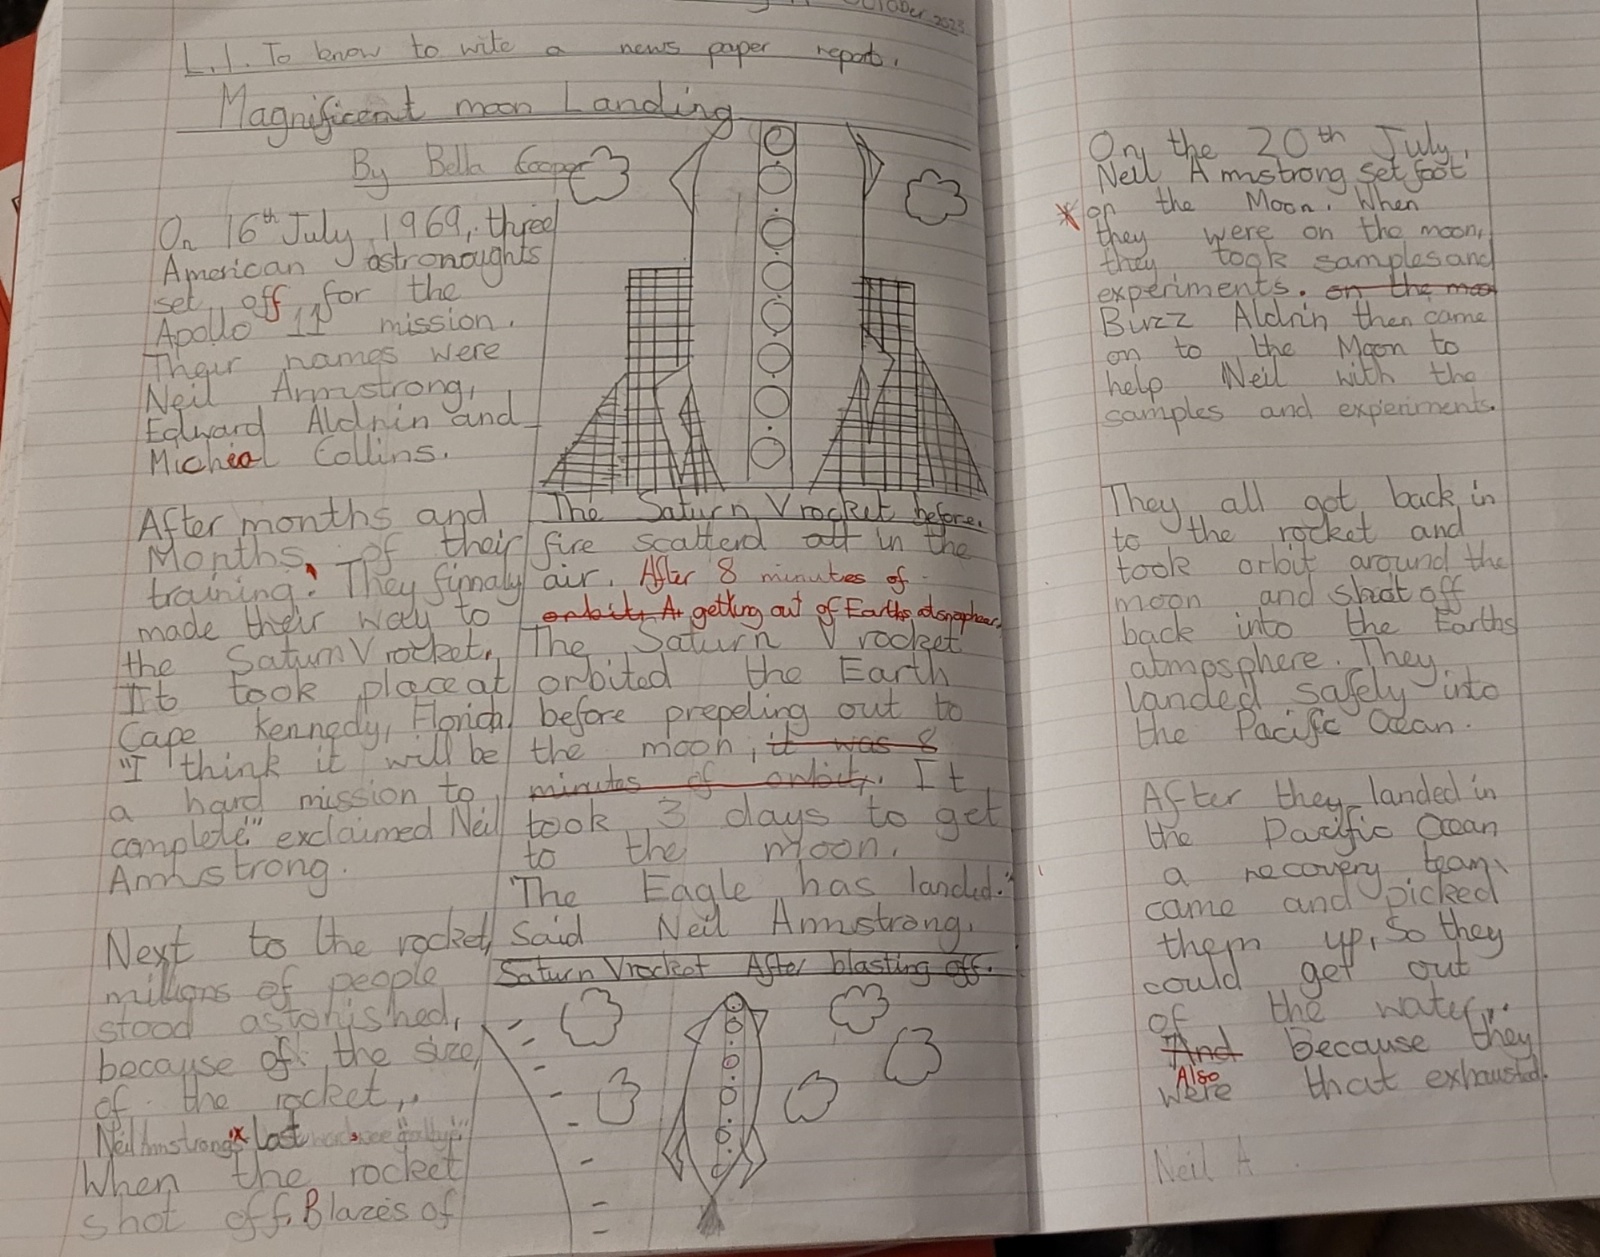 October 2023
L.I. To know to write a news paper report.
Magnificent moon Landing
By Bella Cooper
On 16th July 1969, three
American astronoughts
set off for the
Apollo 11 mission.
Their names were
Neil Armstrong,
Edward Aldrin and
Micheal Collins.
After months and
Months, of their
training. They finnaly
made their way to
the Saturn V rocket.
It took place at
Cape Kennedy, Florida
"I think it will be
a hard mission to
complete" exclaimed Neil
Armstrong.
Next to the rocket,
millions of people
stood astonished,
because of the size
of the rocket,.
Neil Armstrong's last
When the rocket
shot off, Blazes of
The Saturn V rocket before.
fire scatterd all in the
air. After 8 minutes of
orbit, A getting out of Earths atmosphere,
The Saturn V rocket
orbited the Earth
before prepeling out to
the moon, it was 8
minutes of orbit. It
took 3 days to get
to the moon.
"The Eagle has landed."
said Neil Armstrong.
Saturn V rocket After blasting off.
On the 20th July,
Neil Armstrong set foot
on the Moon. When
they were on the moon,
they took samples and
experiments. on the moo
Buzz Aldrin then came
on to the Moon to
help Neil with the
samples and experiments.
They all got back in
to the rocket and
took orbit around the
moon and shot off
back into the Earths
atmosphere. They
landed safely into
the Pacific Ocean.
After they landed in
the Pacific Ocean
a recovery team
came and picked
them up, so they
could get out
of the water,.
And because they
Also
were that exhausted.
Neil A